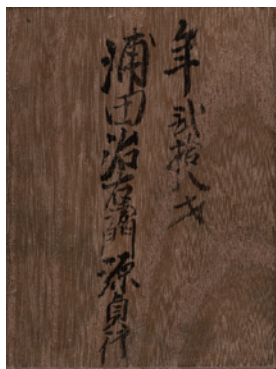 年弐拾八才
浦田治右衛門源貞行